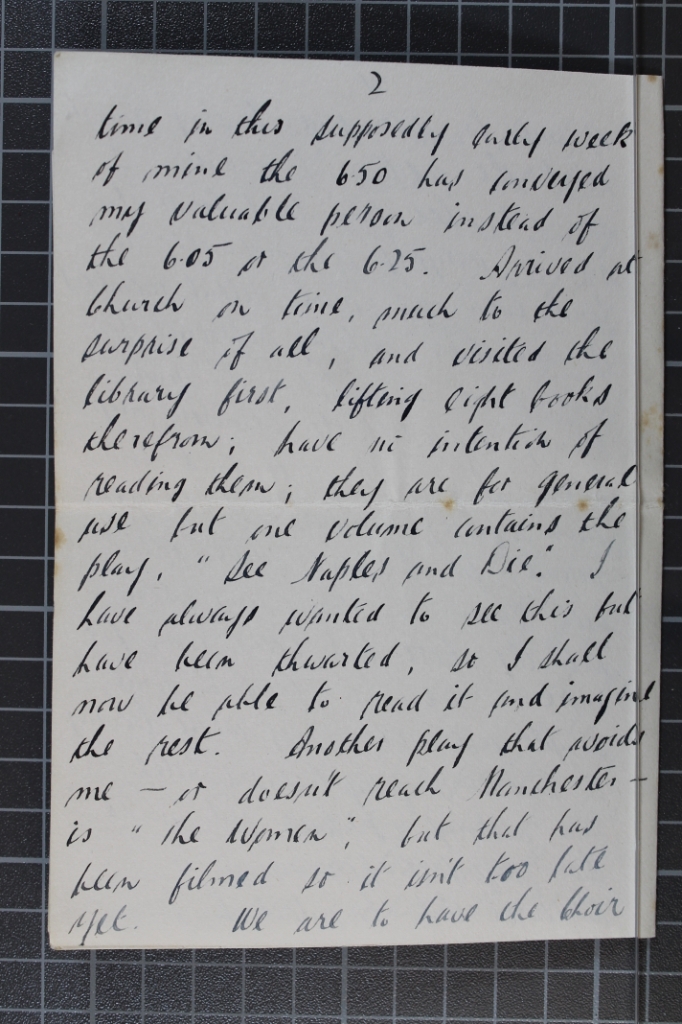 2
time in this supposedly early week
of mine the 6.50 has conveyed
my valuable person instead of
the 6.05 or the 6.25. Arrived at
Church on time, much to the
surprise of all, and visited the
library first, lifting eight books
therefrom; have no intention of
reading them; they are for general
use but one volume contains the
play, "See Naples and Die." I
have always wanted to see this but
have been thwarted, so I shall
now be able to read it and imagine
the rest. Another play that avoids
me — or doesn't reach Manchester —
is "The Women", but that has
been filmed so it isn't too late
yet. We are to have the Choir